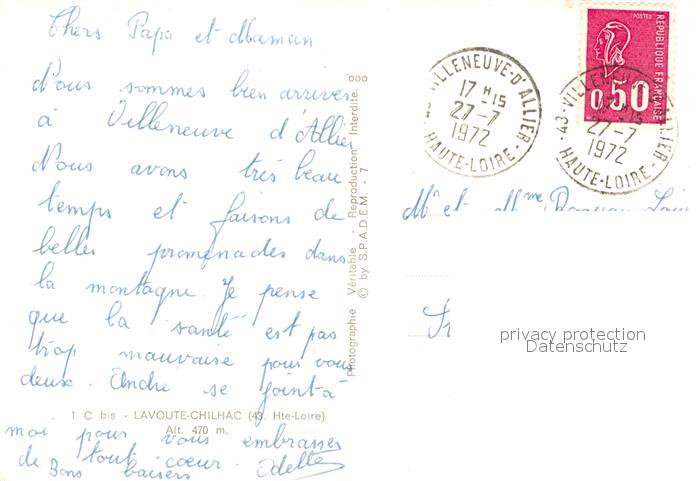 Chers Papa et Maman
Nous sommes bien arrivés
à Villeneuve d'Allier
Nous avons très beau
temps et faisons de
belles promenades dans
la montagne. Je pense
que la santé est pas
trop mauvaise pour vous
deux. André se joint à
moi pour vous embrasser
de tout coeur.
Bons baisers Odette
1 C bis - LAVOUTE-CHILHAC (43. Hte-Loire)
Alt. 470 m.
Photographie Véritable - Reproduction Interdite. ooo
© by S.P.A.D.E.M. - 7
43 VILLENEUVE-D'ALLIER
17 H 15
27-7
1972
HAUTE-LOIRE
POSTES
RÉPUBLIQUE FRANÇAISE
0,50
43-VILLENEUVE-D'ALLIER
17 H 15
27-7
1972
HAUTE-LOIRE
Mr et Mme
privacy protection
Datenschutz